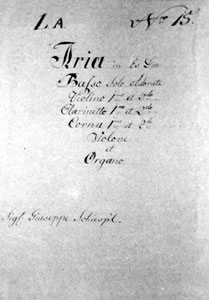 I. A. No 15.
Aria in Es Dur
Basso Solo
Violino 1mo et 2do
Clarinetto 1mo et 2do
Cornu 1mo et 2do
Violone
et
Organo
Giuseppe